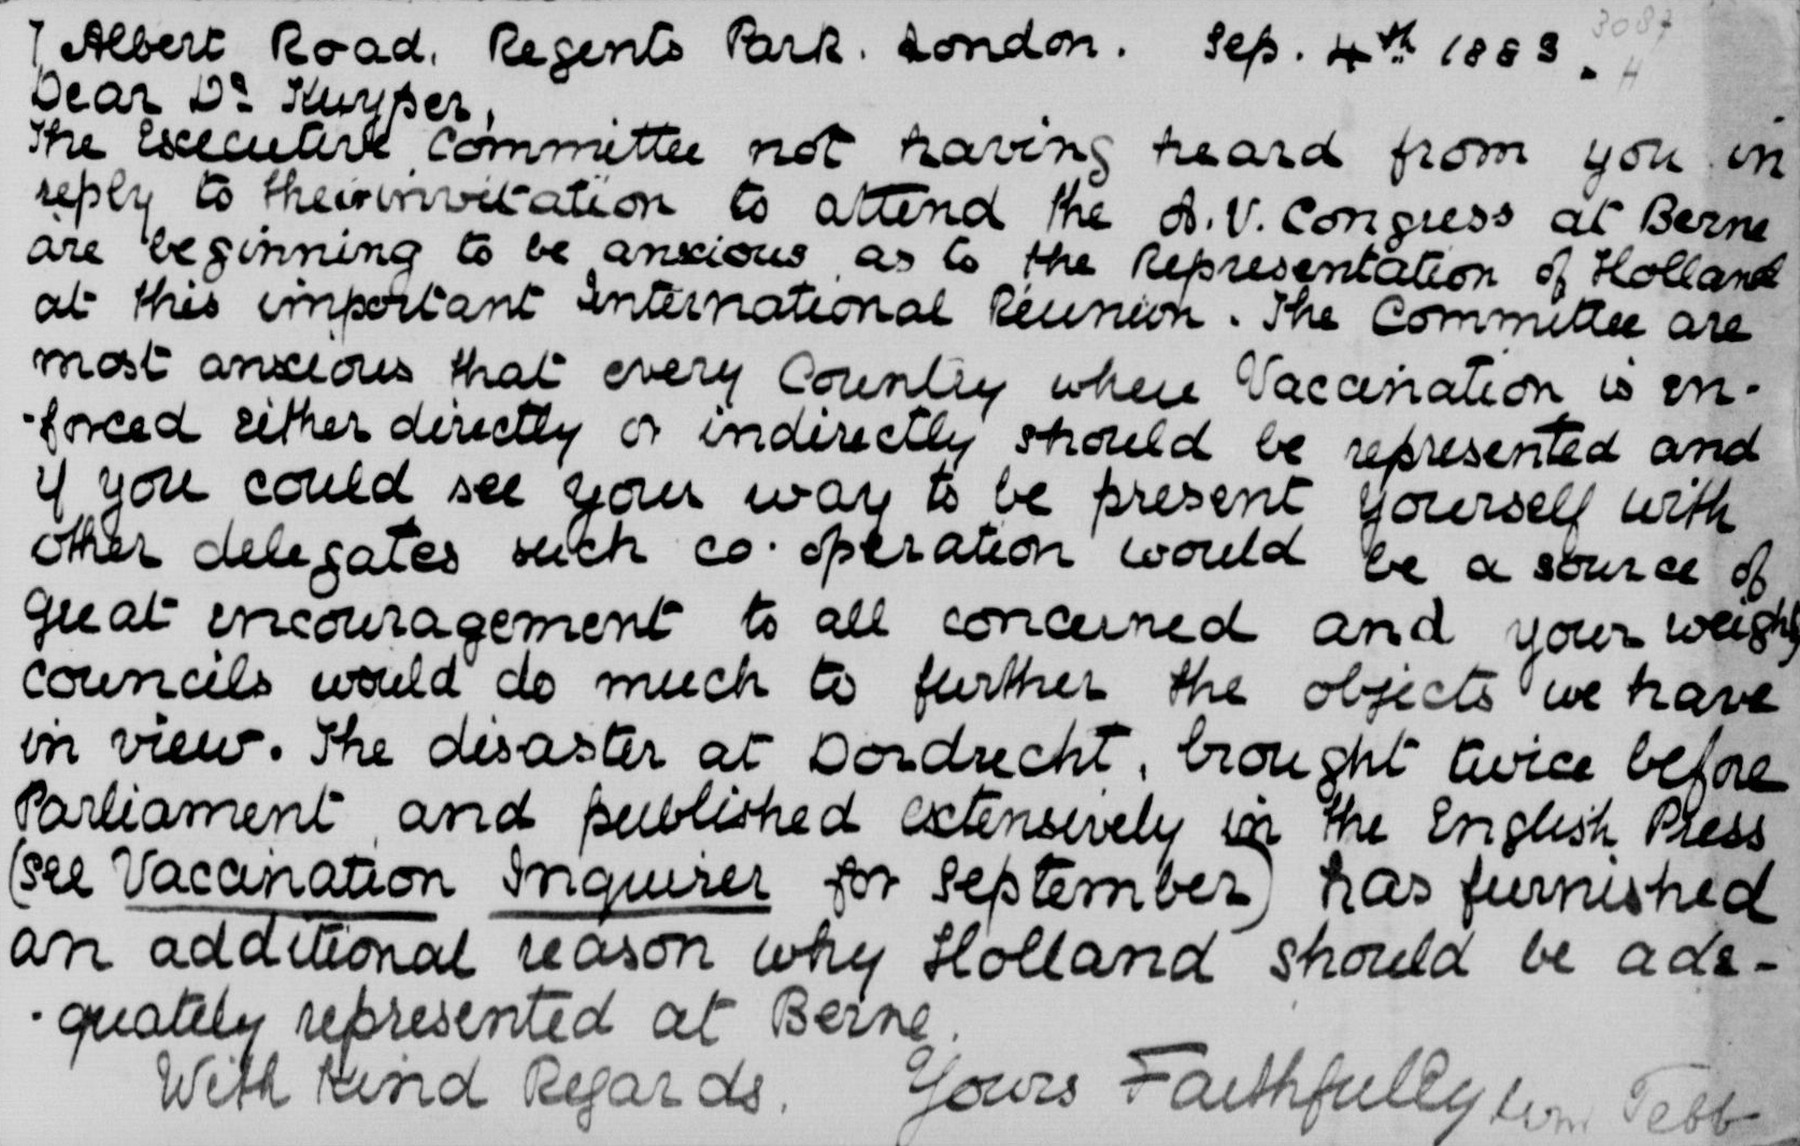 7 Albert Road. Regents Park. London. Sep. 4th 1883.
3087
H
Dear Dr Kuyper,
The Executive Committee not having heard from you in
reply to their invitation to attend the A.V. Congress at Berne
are beginning to be anxious as to the Representation of Holland
at this important International Réunion. The Committee are
most anxious that every Country where Vaccination is en-
-forced either directly or indirectly should be represented and
if you could see your way to be present yourself with
other delegates such co-operation would be a source of
great encouragement to all concerned and your weighty
councils would do much to further the objects we have
in view. The disaster at Dordrecht, brought twice before
Parliament and published extensively in the English Press
(see Vaccination Inquirer for September) has furnished
an additional reason why Holland should be ade-
-quately represented at Berne.
With Kind Regards. Yours Faithfully Wm Tebb